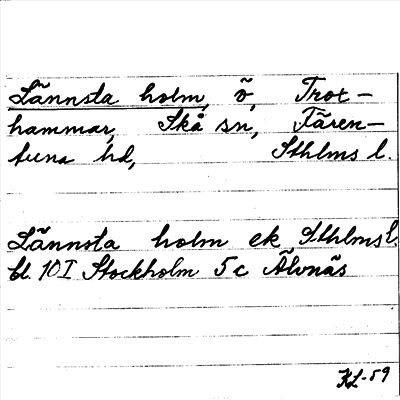 Lännsta holm, ö, Trot-
hammar, Skå sn, Fären-
tuna hd, Sthlms l.
Lännsta holm ek Sthlms l.
bl. 10 I Stockholm 5c Älvnäs
KL-59